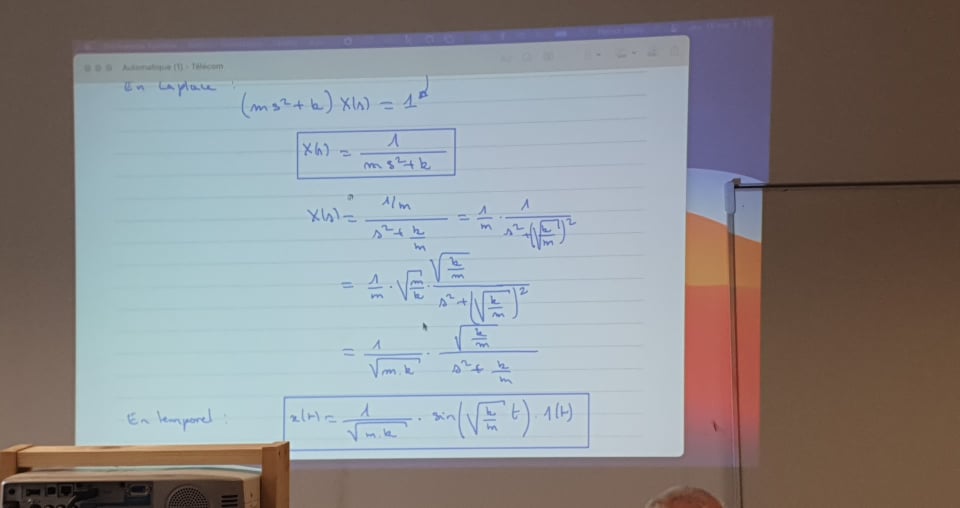 Automatique (1) - Télécom
En Laplace :
(ms² + k) X(s) = 1
X(s) = 1 / (ms² + k)
X(s) = (1/m) / (s² + k/m) = 1/m · 1 / (s² + (√(k/m))²)
= 1/m · √(m/k) · √(k/m) / (s² + (√(k/m))²)
= 1/√(m.k) · √(k/m) / (s² + k/m)
En temporel : x(t) = 1/√(m.k) · sin(√(k/m) t) · 1(t)